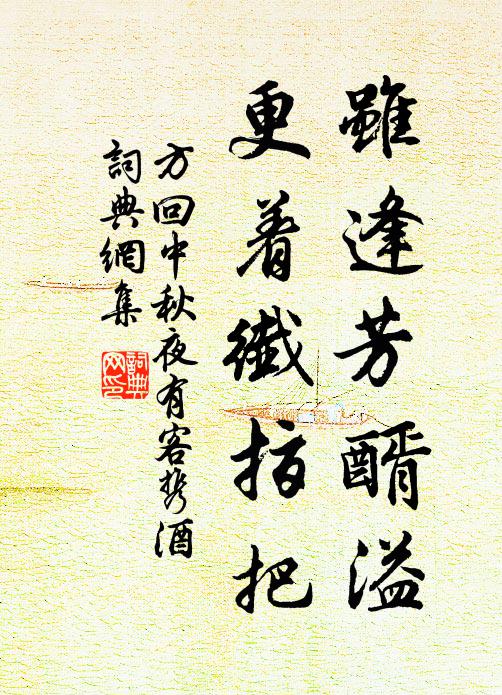 雖逢芳醑溢
更着纖指把
方回中秋夜有客携酒
詞典網集
詞典
网印